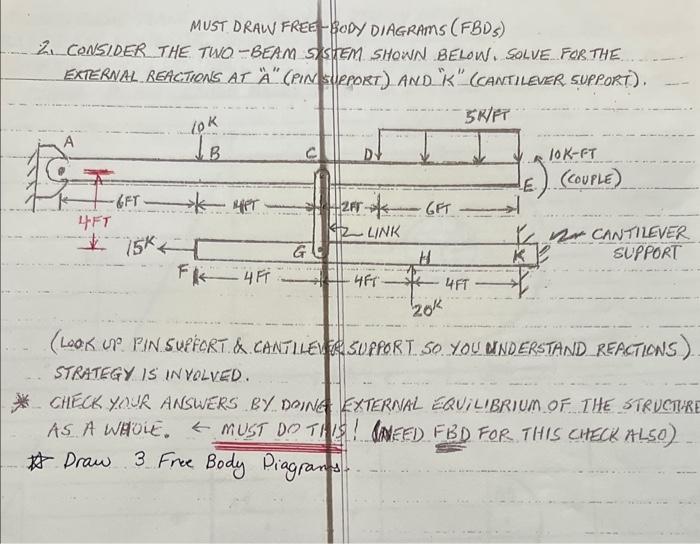 MUST DRAW FREE-BODY DIAGRAMS (FBDs)
2. CONSIDER THE TWO-BEAM SYSTEM SHOWN BELOW. SOLVE FOR THE
EXTERNAL REACTIONS AT "A" (PIN SUPPORT) AND "K" (CANTILEVER SUPPORT).
5K/FT
10K
A
B
C
D
10K-FT
(COUPLE)
E
6FT
4FT
2FT
6FT
4FT
LINK
CANTILEVER
SUPPORT
15K
G
H
K
F
4FT
4FT
4FT
20K
(LOOK UP PIN SUPPORT & CANTILEVER SUPPORT SO YOU UNDERSTAND REACTIONS)
STRATEGY IS INVOLVED.
* CHECK YOUR ANSWERS BY DOING EXTERNAL EQUILIBRIUM OF THE STRUCTURE
AS A WHOLE. ← MUST DO THIS! (NEED FBD FOR THIS CHECK ALSO)
☆ Draw 3 Free Body Diagrams.